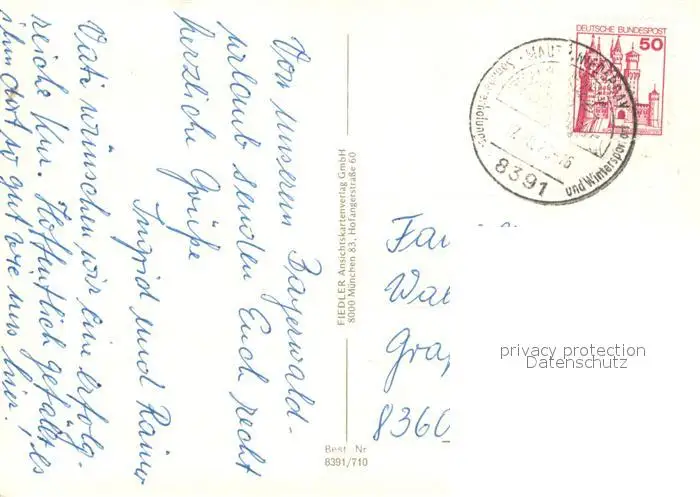 Von unserem Bayerwald-
urlaub senden Euch recht
herzliche Grüße
Ingrid und Rainer
Vati wünschen wir eine erfolg-
reiche Kur. Hoffentlich gefällt es
ihm dort so gut wie uns hier!
FIEDLER Ansichtskartenverlag GmbH
8000 München 83, Hofangerstraße 60
Best. Nr
8391/710
DEUTSCHE BUNDESPOST
50
8391
und Wintersportort
Fa
Wa
Gra
8360
privacy protection
Datenschutz